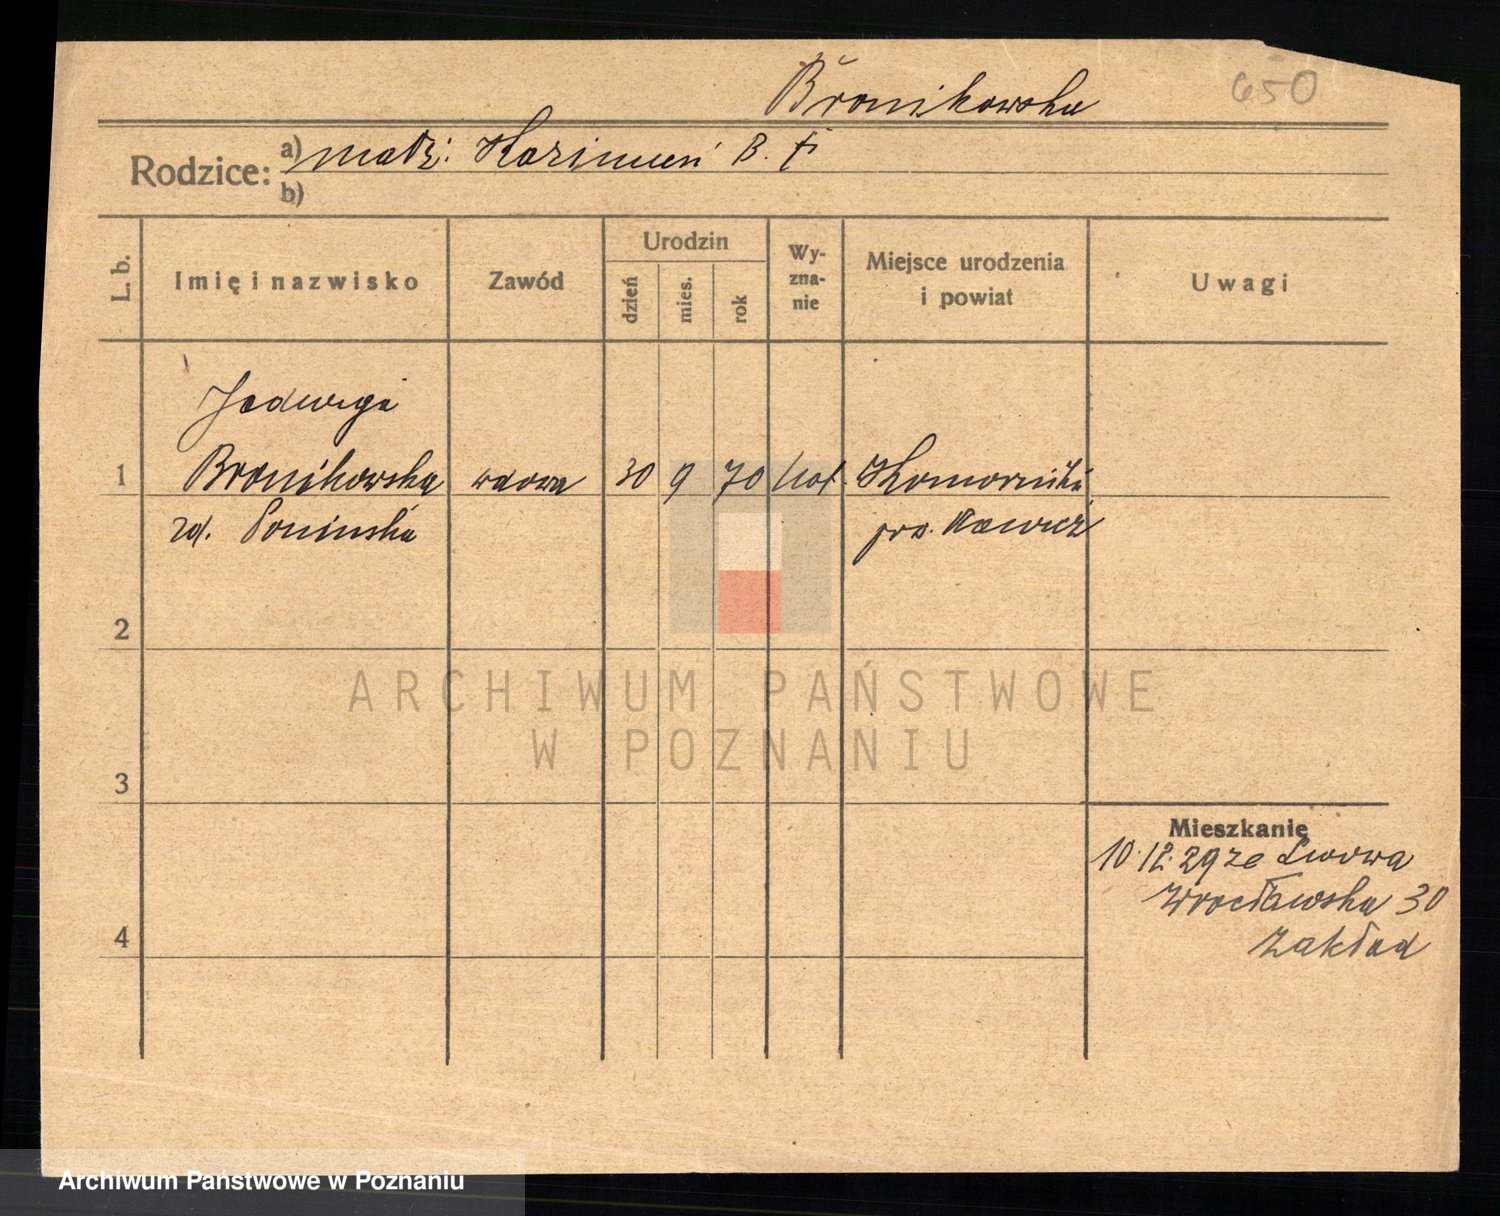 Bronikowska
650
Rodzice:
a) małż: Kazimierz B. †
b)
L. b.
Imię i nazwisko
Zawód
Urodzin
dzień
mies.
rok
Wy-
zna-
nie
Miejsce urodzenia
i powiat
Uwagi
Jadwiga
1 Bronikowska wdowa 30 9 70 kat.
zd. Ponińska
pow. Rawicz
2
3
4
Mieszkanie
10.12.29 ze Lwowa
Wrocławska 30
Zakład
ARCHIWUM PAŃSTWOWE
W POZNANIU
Archiwum Państwowe w Poznaniu